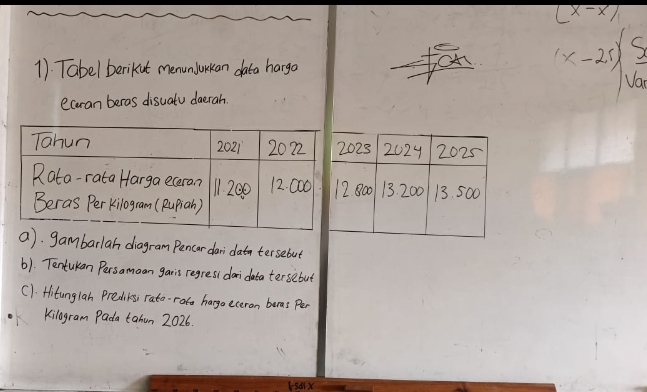 1). Tabel berikut menunjukkan data harga
eceran beras disuatu daerah.
Tahun 2021 2022 2023 2024 2025
Rata-rata Harga eceran Beras Per Kilogram (Rupiah) 11.200 12.000 12.800 13.200 13.500
a). gambarlah diagram Pencar dari data tersebut
b). Tentukan Persamaan garis regresi dari data tersebut
c). Hitunglah Prediksi rata-rata harga eceran beras Per
Kilogram Pada tahun 2026.
(x-x)
(x-25)
Var